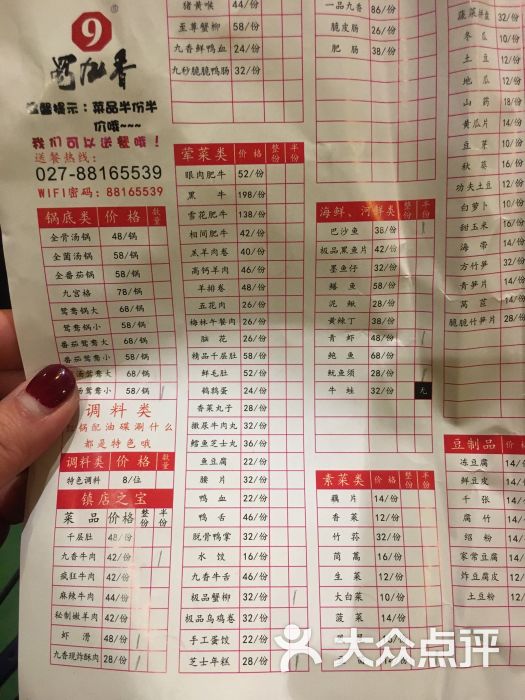 9
蜀九香
温馨提示：菜品半份半
价哦~~~
我们可以送餐哦！
送餐热线：
027-88165539
WIFI密码：88165539
锅底类 价格 数量
全骨汤锅 48/锅
全菌汤锅 58/锅
全番茄锅 58/锅
九宫格 78/锅
鸳鸯锅大 68/锅
鸳鸯锅小 58/锅
番茄鸳鸯大 68/锅
番茄鸳鸯小 58/锅
汤鸳鸯大 68/锅
汤鸳鸯小 58/锅
调料类
锅配油碟涮什么
都是特色哦
调料类 价格 数量
特色调料 8/位
镇店之宝
菜品 价格 整份 半份
千层肚 48/份
九香牛肉 42/份
疯狂牛肉 42/份
麻辣牛肉 44/份
秘制嫩羊肉 42/份
虾滑 48/份
九香现炸酥肉 28/份
猪黄喉 44/份
至尊蟹柳 58/份
九香鲜鸭血 24/份
九秒脆脆鸭肠 32/份
荤菜类 价格 整份 半份
眼肉肥牛 52/份
黑牛 198/份
雪花肥牛 138/份
相间肥牛 42/份
羔羊肉卷 40/份
高钙羊肉 46/份
羊排卷 48/份
五花肉 26/份
梅林午餐肉 26/份
脑花 26/份
精品千层肚 52/份
鲜毛肚 52/份
鹌鹑蛋 24/份
香菜丸子 28/份
撒尿牛肉丸 32/份
鳕鱼芝士丸 36/份
鱼豆腐 22/份
腰片 32/份
鸭血 22/份
鸭舌 46/份
脱骨鸭掌 32/份
水饺 16/份
九香牛舌 46/份
极品蟹柳 32/份
极品乌鸡卷 32/份
手工蛋饺 22/份
芝士年糕 28/份
一品九香 86/份
脆皮肠 26/份
肥肠 32/份
海鲜、河鲜类 价格 整份 半份
巴沙鱼 38/份
极品黑鱼片 42/份
墨鱼仔 32/份
鳝鱼 58/份
泥鳅 38/份
黄辣丁 38/份
青虾 48/份
鲍鱼 68/份
鱿鱼须 28/份
牛蛙 32/份 无
素菜类 价格 整份 半份
藕片 14/份
香菜 12/份
竹荪 32/份
茼蒿 16/份
生菜 12/份
大白菜 10/份
菠菜 14/份
蔬菜拼盘
冬瓜 10/份
土豆 12/份
地瓜 12/份
山药 18/份
黄瓜片 14/份
豆芽 10/份
秋葵 16/份
功夫土豆 12/份
白萝卜 10/份
甜玉米 16/份
海带 14/份
方竹笋 32/份
青笋片 14/份
莴苣 16/份
脆脆竹笋片 14/份
豆制品 价
冻豆腐 14/
鲜豆皮 14/
千张 14/
腐竹 14/
绍粉 14/
家常豆腐 14/
炸豆腐皮 12/
土豆粉 12/
大众点评